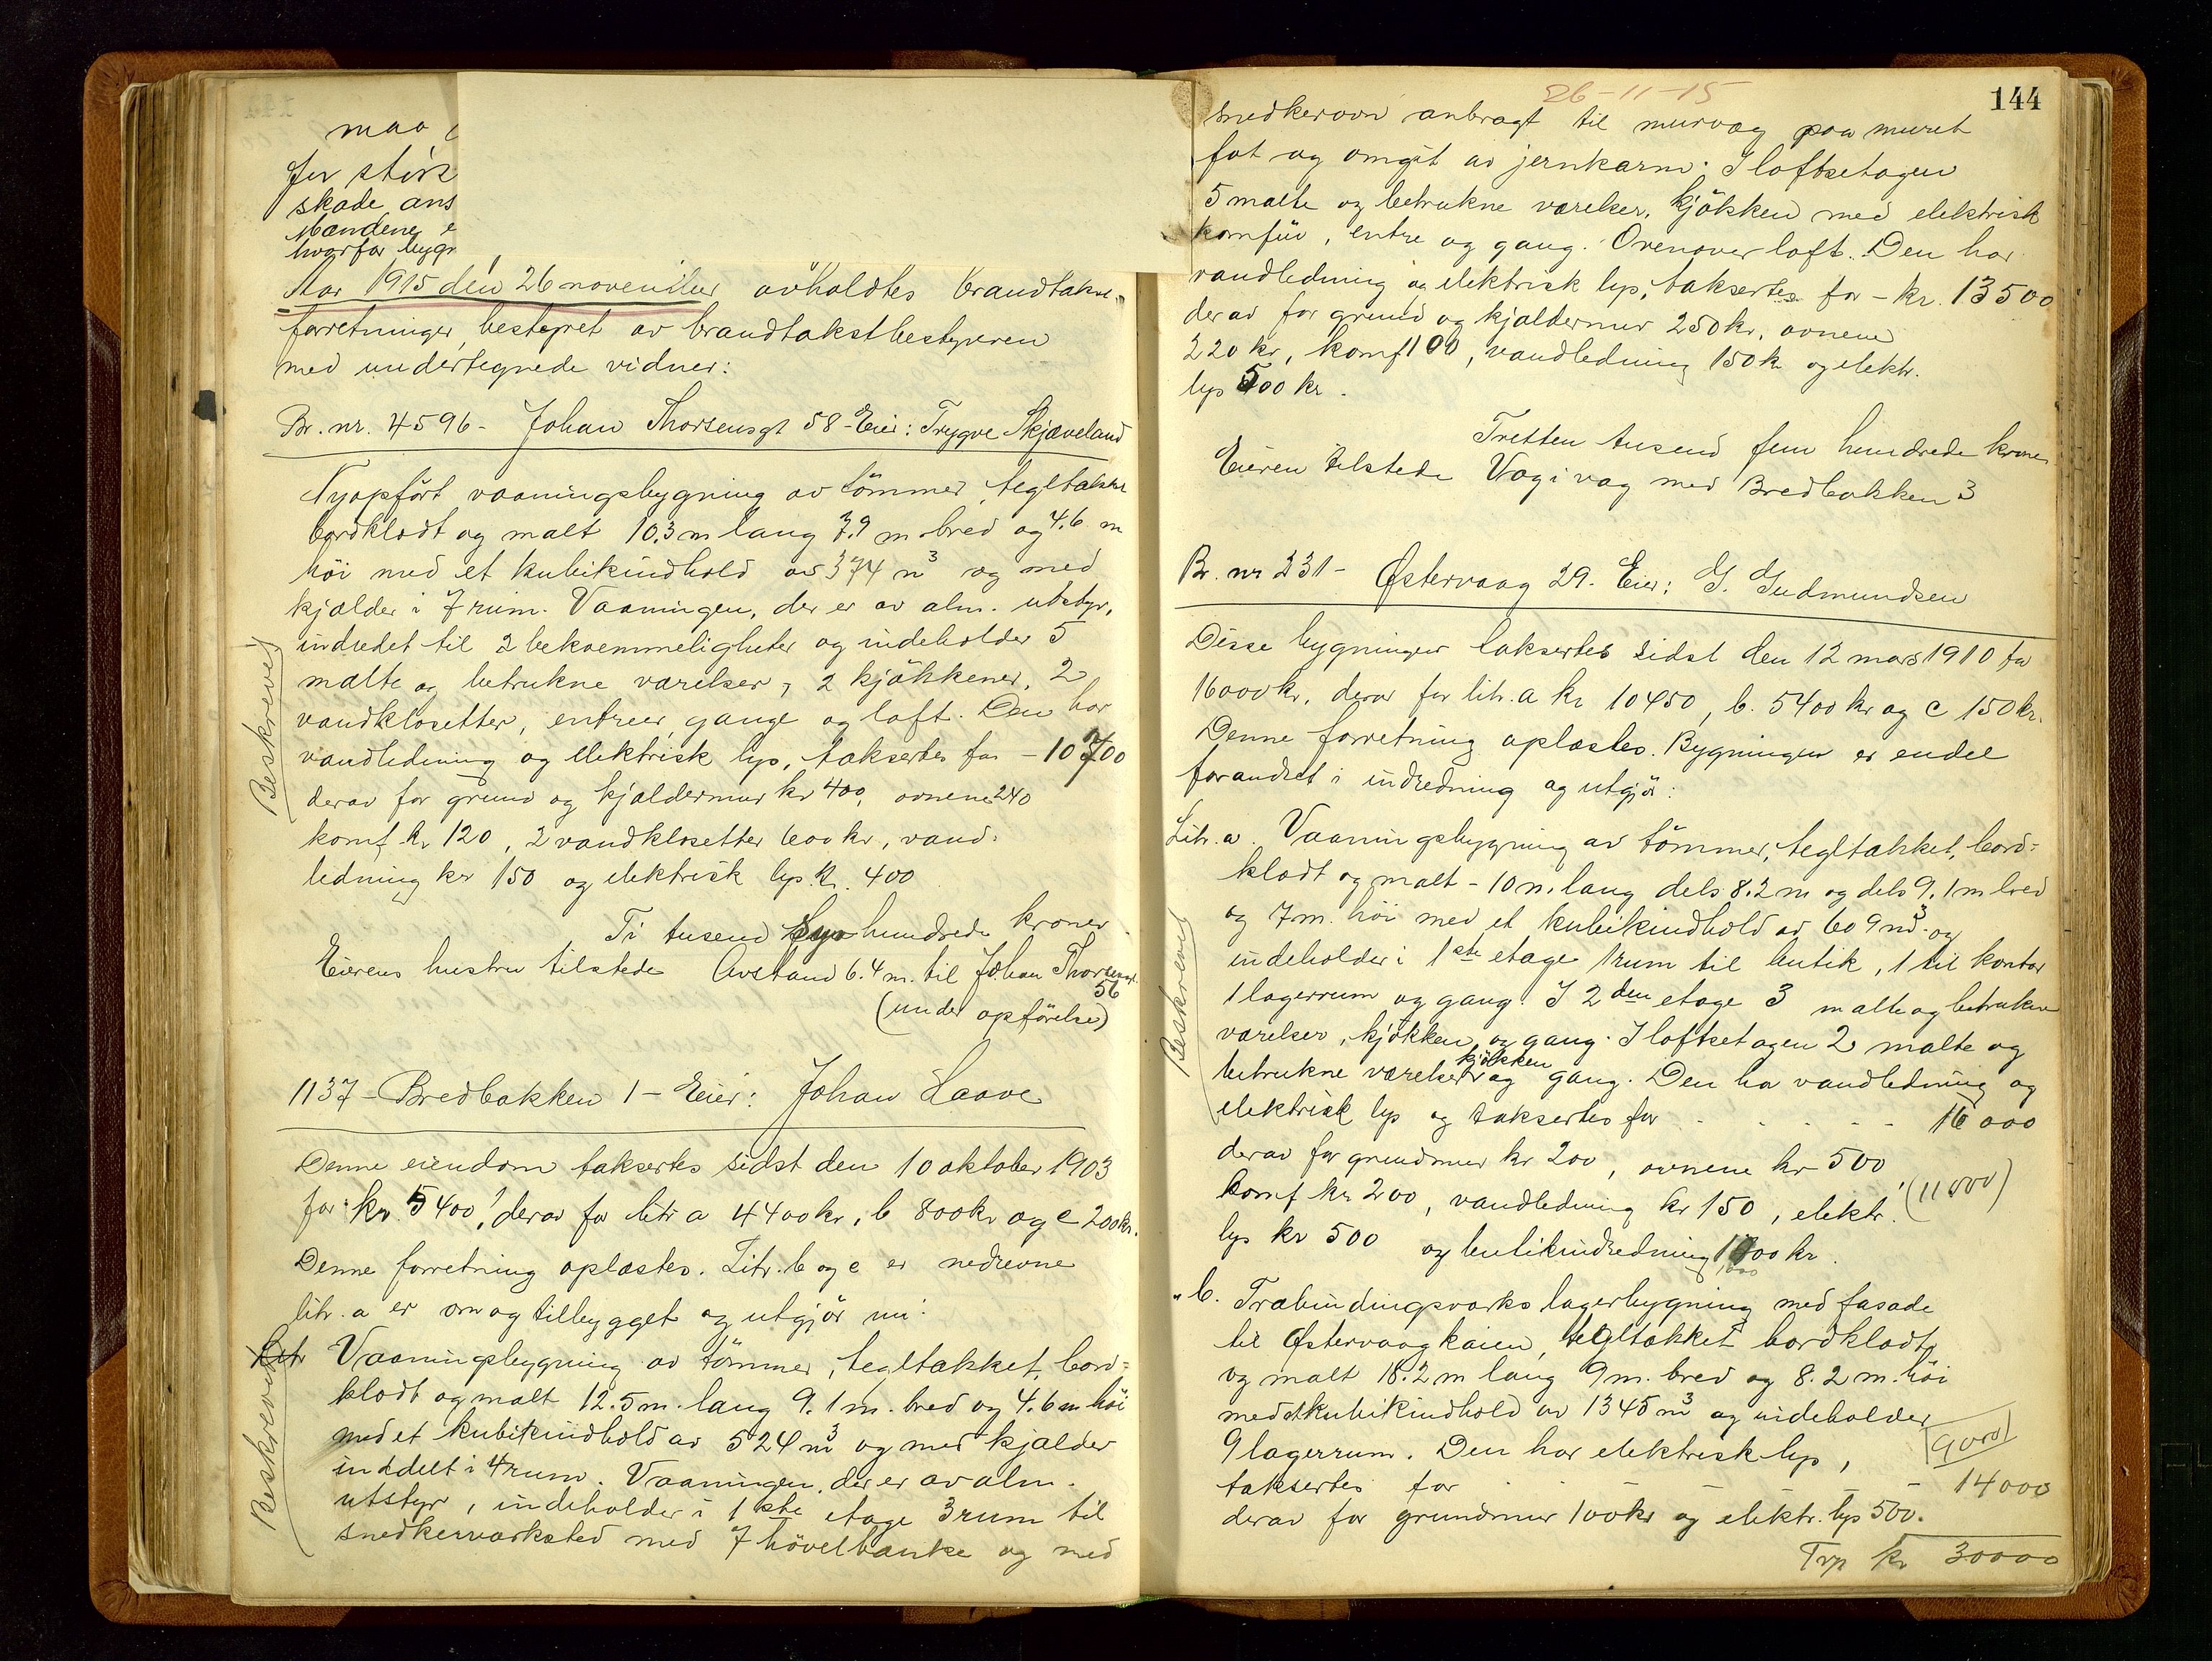 maa
for størs
skade ans
Mændene e
hvorfor bygn
Aar 1915 den 26 november avholdtes brandtakst-
forretninger, bestyret av brandtakstbestyreren
med undertegnede vidner:
Br. nr. 4596 - Johan Thorsensgt 58 - Eier: Trygve Skjæveland
Nyopført vaaningsbygning av tømmer, tegltækket
bordklædt og malt 10.3 m lang 7.9 m bred og 4.6 m
høi med et kubikindhold av 374 m³ og med
kjælder i 7 rum. Vaaningen, der er av alm. utstyr,
indredet til 2 bekvemmeligheter og indeholder 5
malte og betrukne værelser, 2 kjøkkener, 2
vandklosetter, entreer, gange og loft. Den har
vandledning og elektrisk lys, taksertes for - 10700
derav for grund og kjældermur kr 400, ovnene 240
komf. kr 120, 2 vandklosetter 600 kr, vand-
ledning kr 150 og elektrisk lys kr. 400
Ti tusend syv hundrede kroner
Eierens hustru tilstede Avstand 6.4 m. til Johan Thorsensgt.
56
(under opførelse)
1137 - Bredbakken 1 - Eier: Johan Haave
Denne eiendom taksertes sidst den 10 oktober 1903
for kr. 5400, derav for litr a 4400 kr, b 800 kr og c 200 kr.
Denne forretning oplæstes. Litr. b og c er nedrevne
litr. a er om og tilbygget og utgjør nu:
Litr Vaaningsbygning av tømmer, tegltækket, bord-
klædt og malt 12.5 m. lang 9.1 m. bred og 4.6 m høi
med et kubikindhold av 524 m³ og med kjælder
inddelt i 4 rum. Vaaningen, der er av alm.
utstyr, indeholder i 1ste etage 3 rum til
snedkerværksted med 7 høvelbænke og med
Beskrevet
Beskrevet
26-11-15
144
snedkerovn anbragt til murvæg paa muret
fot og omgit av jernkarm. I loftsetagen
5 malte og betrukne værelser, kjøkken med elektrisk
komfür, entre og gang. Ovenover loft. Den har
vandledning og elektrisk lys, taksertes for - kr. 13500
derav for grund og kjældermur 250 kr, ovnene
220 kr, komf 100, vandledning 150 kr og elektr.
lys 500 kr.
Tretten tusend fem hundrede kroner
Eieren tilstede Væg i væg med Bredbakken 3
Br. nr 231 - Østervaag 29. Eier: G. Gudmundsen
Disse bygninger taksertes sidst den 12 mars 1910 for
16000 kr, derav for litr. a kr 10450, b. 5400 kr og c 150 kr.
Denne forretning oplæstes. Bygningen er endel
forandret i indredning og utgjør:
Litr. a. Vaaningsbygning av tømmer, tegltækket, bord-
klædt og malt - 10 m. lang dels 8.2 m og dels 9.1 m bred
og 7 m. høi med et kubikindhold av 609 m³ og
indeholder i 1ste etage 1 rum til butik, 1 til kontor
1 lagerrum og gang. I 2den etage 3 malte og betrukne
værelser, kjøkken og gang. I loftsetagen 2 malte og
betrukne værelser kjøkken og gang. Den har vandledning og
elektrisk lys og taksertes for - - - - - 16 000
derav for grundmur kr 200, ovnene kr 500
komf kr 200, vandledning kr 150, elektr. (11000)
lys kr 500 og butikindredning 1000 kr.
" b. Træbindingsværks lagerbygning med fasade
til Østervaagkaien, tegltækket bordklædt
og malt 18.2 m lang 9 m. bred og 8.2 m. høi
med et kubikindhold av 1345 m³ og indeholder
9 lagerrum. Den har elektrisk lys, (9000)
taksertes for - - - - 14000
derav for grundmur 100 kr og elektr. lys 500.
Trp kr 30000
Beskrevet